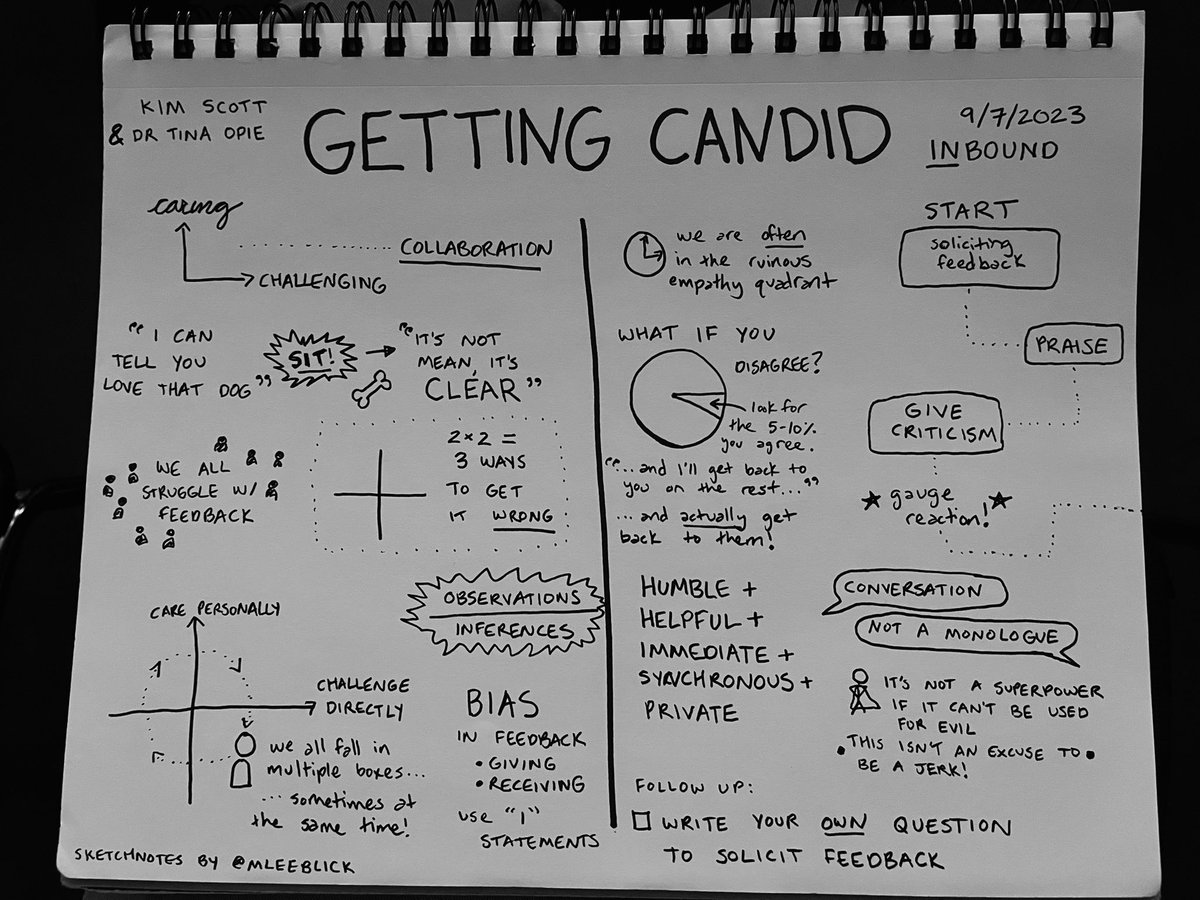 KIM SCOTT
& DR TINA OPIE
GETTING CANDID
9/7/2023
INBOUND
caring
CHALLENGING
COLLABORATION
"I CAN
TELL YOU
LOVE THAT DOG"
SIT!
"IT'S NOT
MEAN, IT'S
CLEAR"
WE ALL
STRUGGLE W/
FEEDBACK
2×2 =
3 WAYS
TO GET
IT WRONG
OBSERVATIONS
INFERENCES
CARE PERSONALLY
CHALLENGE
DIRECTLY
we all fall in
multiple boxes...
... sometimes at
the same time!
BIAS
IN FEEDBACK
• GIVING
• RECEIVING
use "I"
STATEMENTS
SKETCHNOTES BY @MLEEBLICK
we are often
in the ruinous
empathy quadrant
WHAT IF YOU
DISAGREE?
look for
the 5-10%
you agree.
"...and I'll get back to
you on the rest..."
...and actually get
back to them!
HUMBLE +
HELPFUL +
IMMEDIATE +
SYNCHRONOUS +
PRIVATE
START
soliciting
feedback
PRAISE
GIVE
CRITICISM
gauge
reaction!
CONVERSATION
NOT A MONOLOGUE
IT'S NOT A SUPERPOWER
IF IT CAN'T BE USED
FOR EVIL
• THIS ISN'T AN EXCUSE TO •
BE A JERK!
FOLLOW UP:
☐ WRITE YOUR OWN QUESTION
TO SOLICIT FEEDBACK